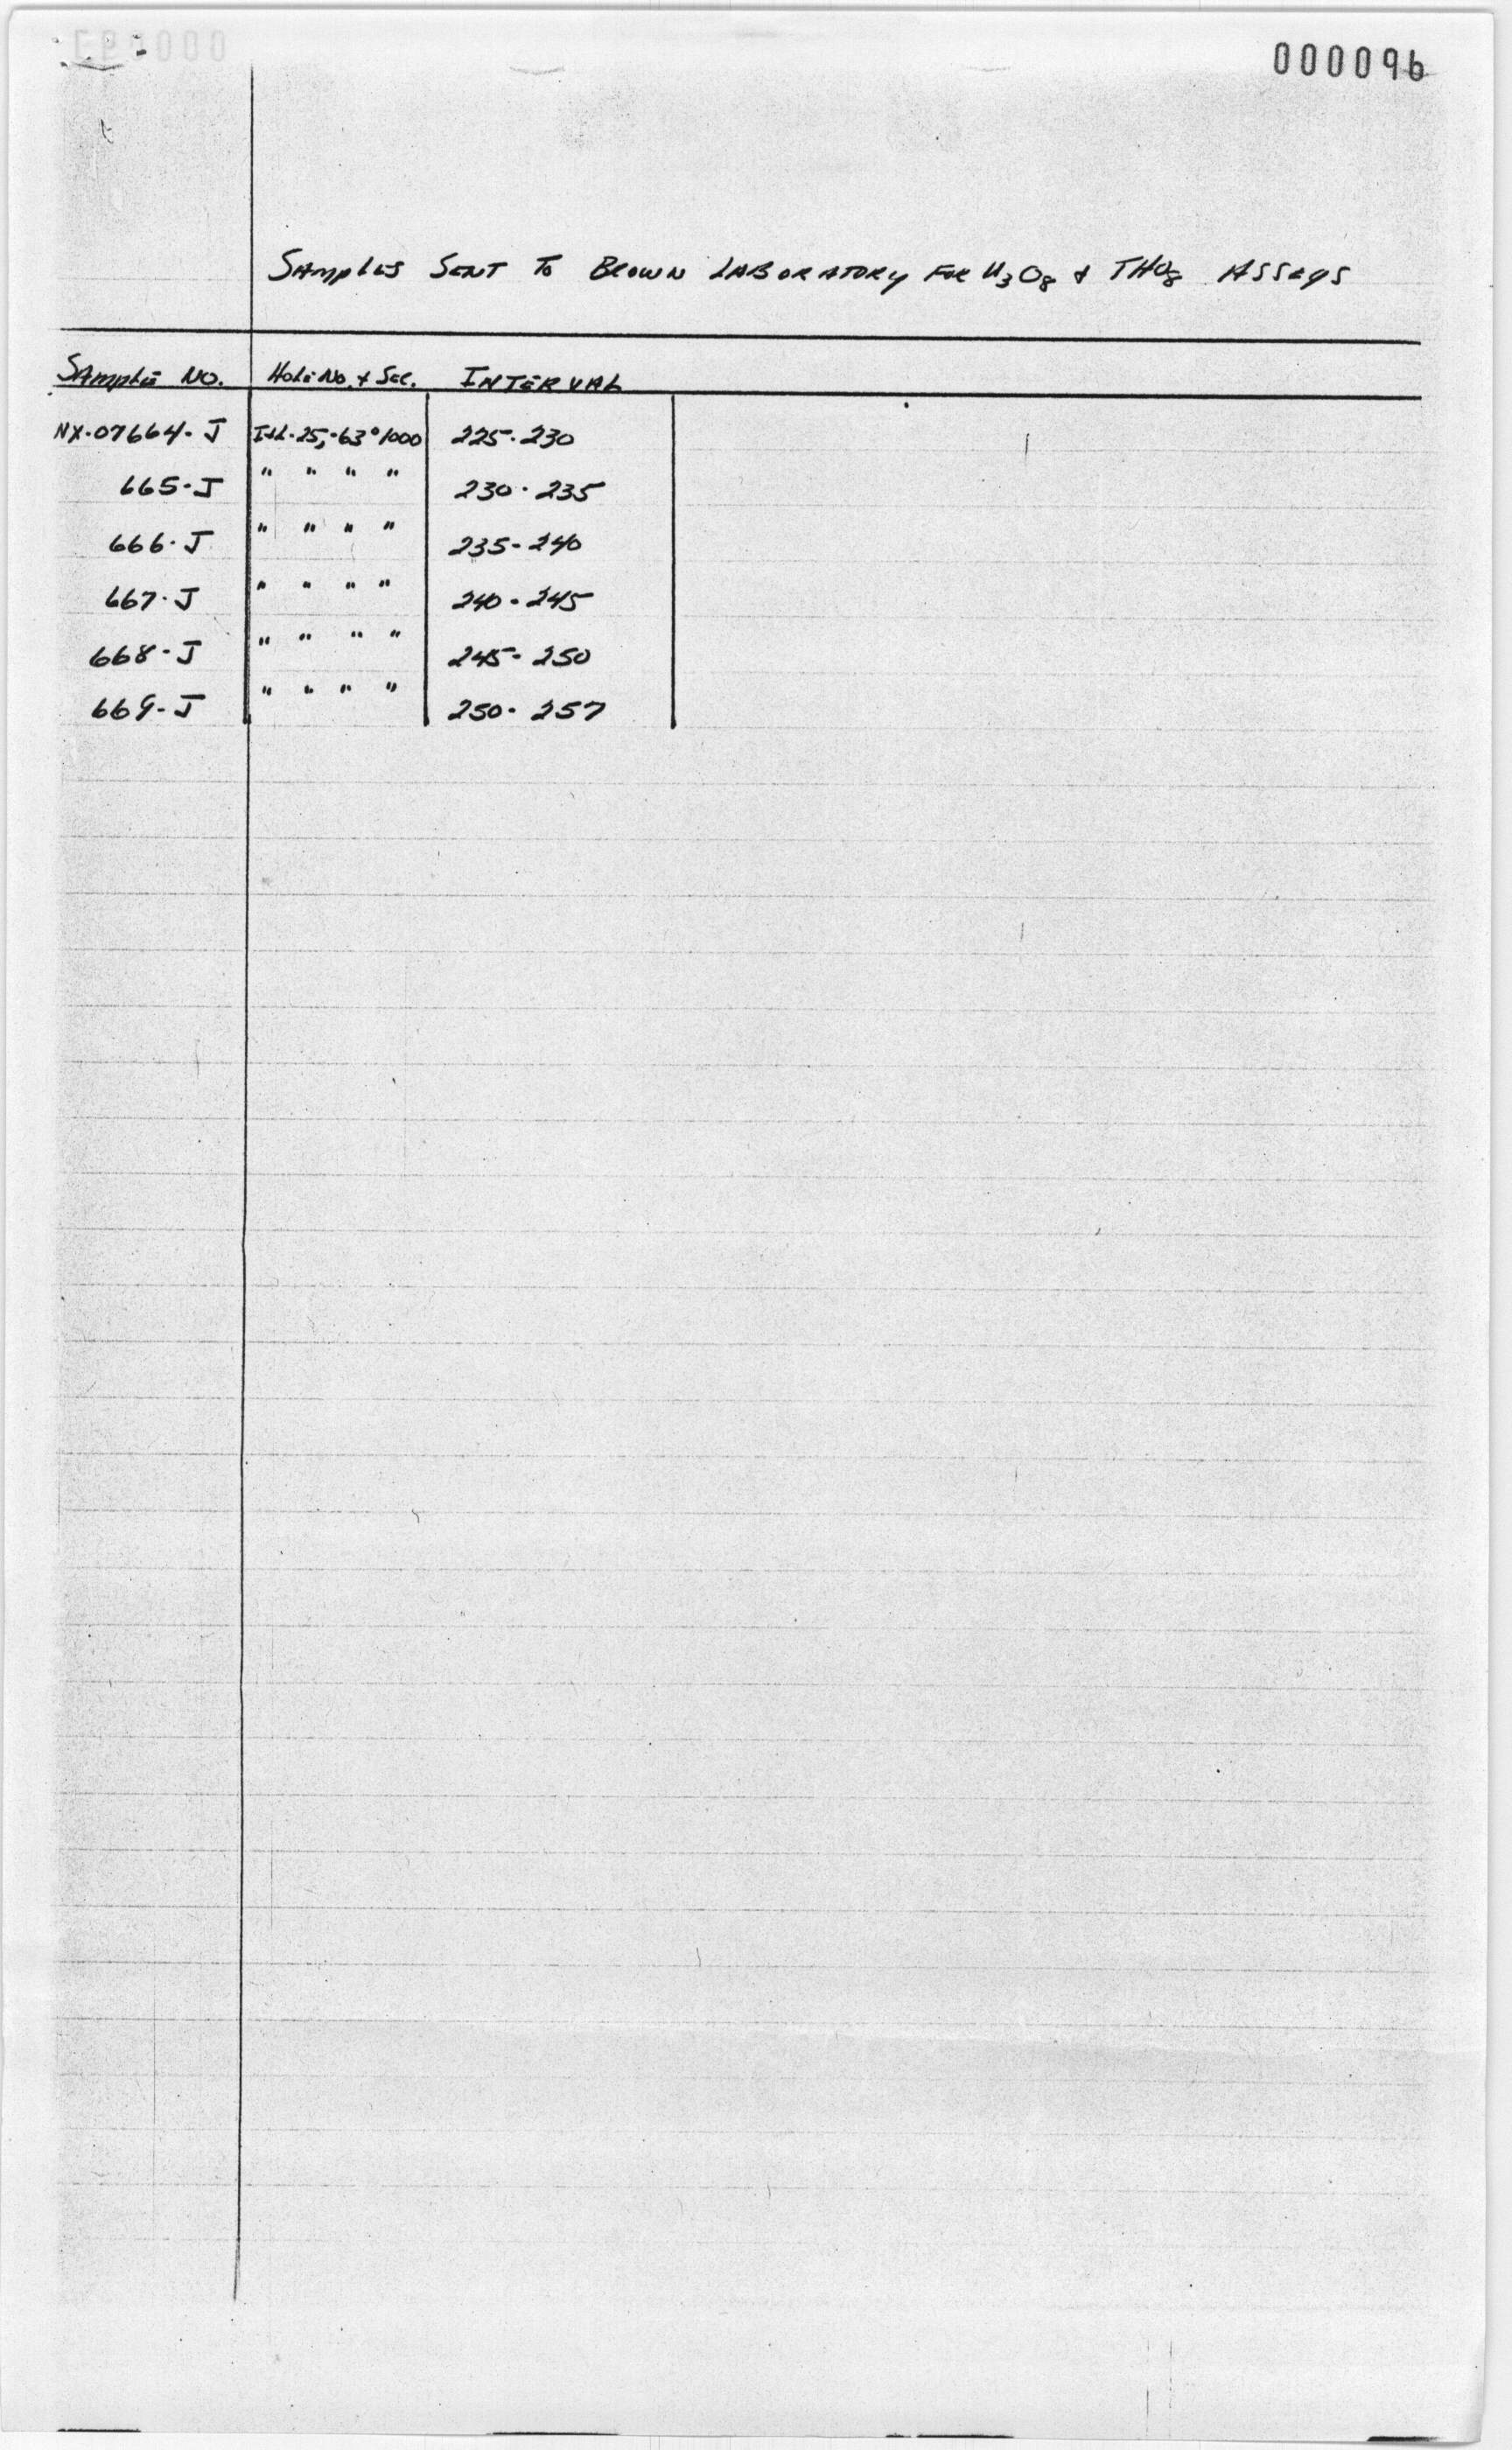 000096
SAMPLES SENT TO BROWN LABORATORY FOR U3O8 & THO8 ASSAYS
SAMPLE NO. HOLE NO. & SEC. INTERVAL
NX-07664-J 25, -63° 1000 225-230
665-J " " " " 230-235
666-J " " " " 235-240
667-J " " " " 240-245
668-J " " " " 245-250
669-J " " " " 250-257